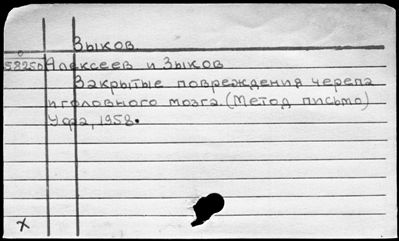 Зыков
58250 Алексеев и Зыков
Закрытые повреждения черепа
и головного мозга. (Метод письмо)
Уфа, 1958.
X